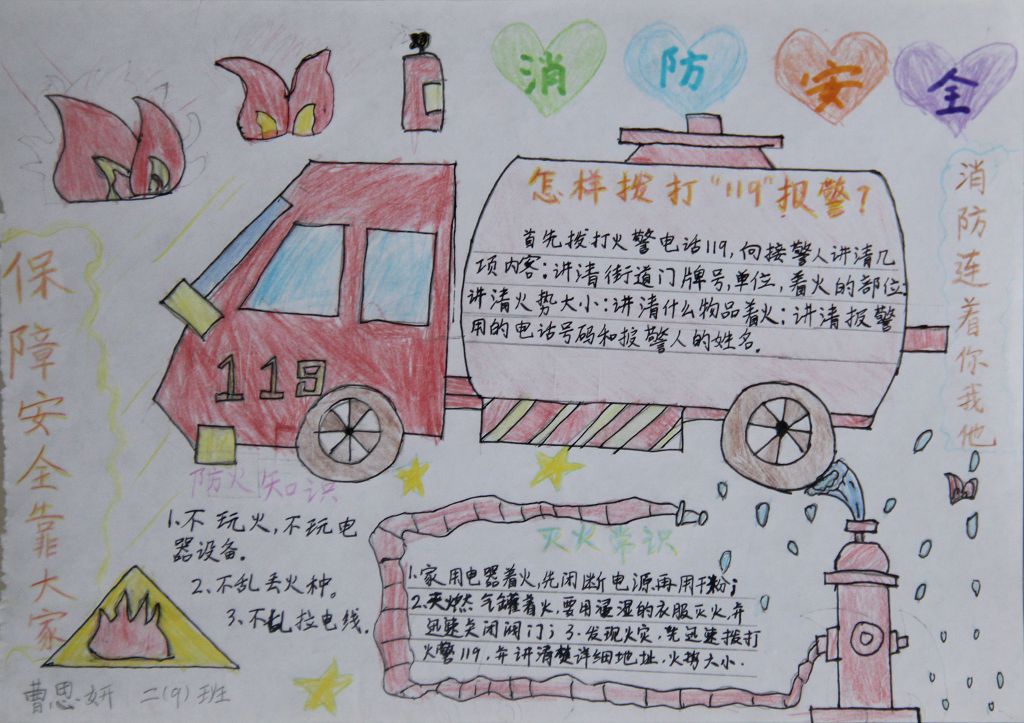 消防安全
怎样拨打“119”报警？
首先拨打火警电话119，向接警人讲清几
项内容：讲清街道门牌号，单位，着火的部位
讲清火势大小：讲清什么物品着火：讲清报警
用的电话号码和报警人的姓名。
消防连着你我他
保障安全靠大家
119
防火知识
1.不玩火，不玩电
器设备。
2.不乱丢火种。
3.不乱拉电线。
灭火常识
1.家用电器着火，先闭断电源再用干粉；
2.天燃气罐着火，要用湿的衣服灭火，并
迅速关闭阀门；3.发现火灾，先迅速拨打
火警119，并讲清楚详细地址，火势大小．
曹思妍 二(9)班